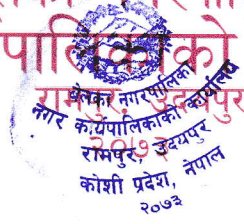 पालिकाको
रामपुर, उदयपुर
बेलका नगरपालिका
नगर कार्यपालिकाको कार्यालय
रामपुर, उदयपुर
कोशी प्रदेश, नेपाल
२०७३